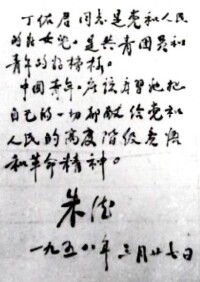 丁佑君同志是党和人民
的好女儿。是共青团员和
青年的好榜样。
中国青年应该学习她把
自己的一切都献给党和
人民的高度阶级觉悟
和革命精神。
朱德
一九五八年三月廿七日